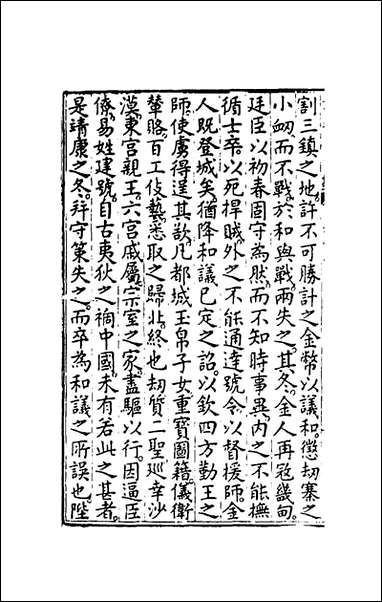 割三鎮之地許不可勝計之金幣以議和懲刼寨之
小衂而不戰於和與戰兩失之其冬金人再宼畿甸
廷臣以初春固守為然而不知時事異内之不能撫
循士卒以死捍賊外之不能通達號令以督援師金
人既登城矣猶降和議已定之詔以欽四方勤王之
師使虜得逞其欲凡都城玉帛子女重寳圖籍儀衛
輦輅百工伎藝悉取之歸北終也刼質二聖巡幸沙
漠東宫親王六宫戚屬宗室之家盡驅以行因逼臣
僚易姓建號自古夷狄之禍中國未有若此之甚者
是靖康之冬并守策失之而卒為和議之所誤也陛